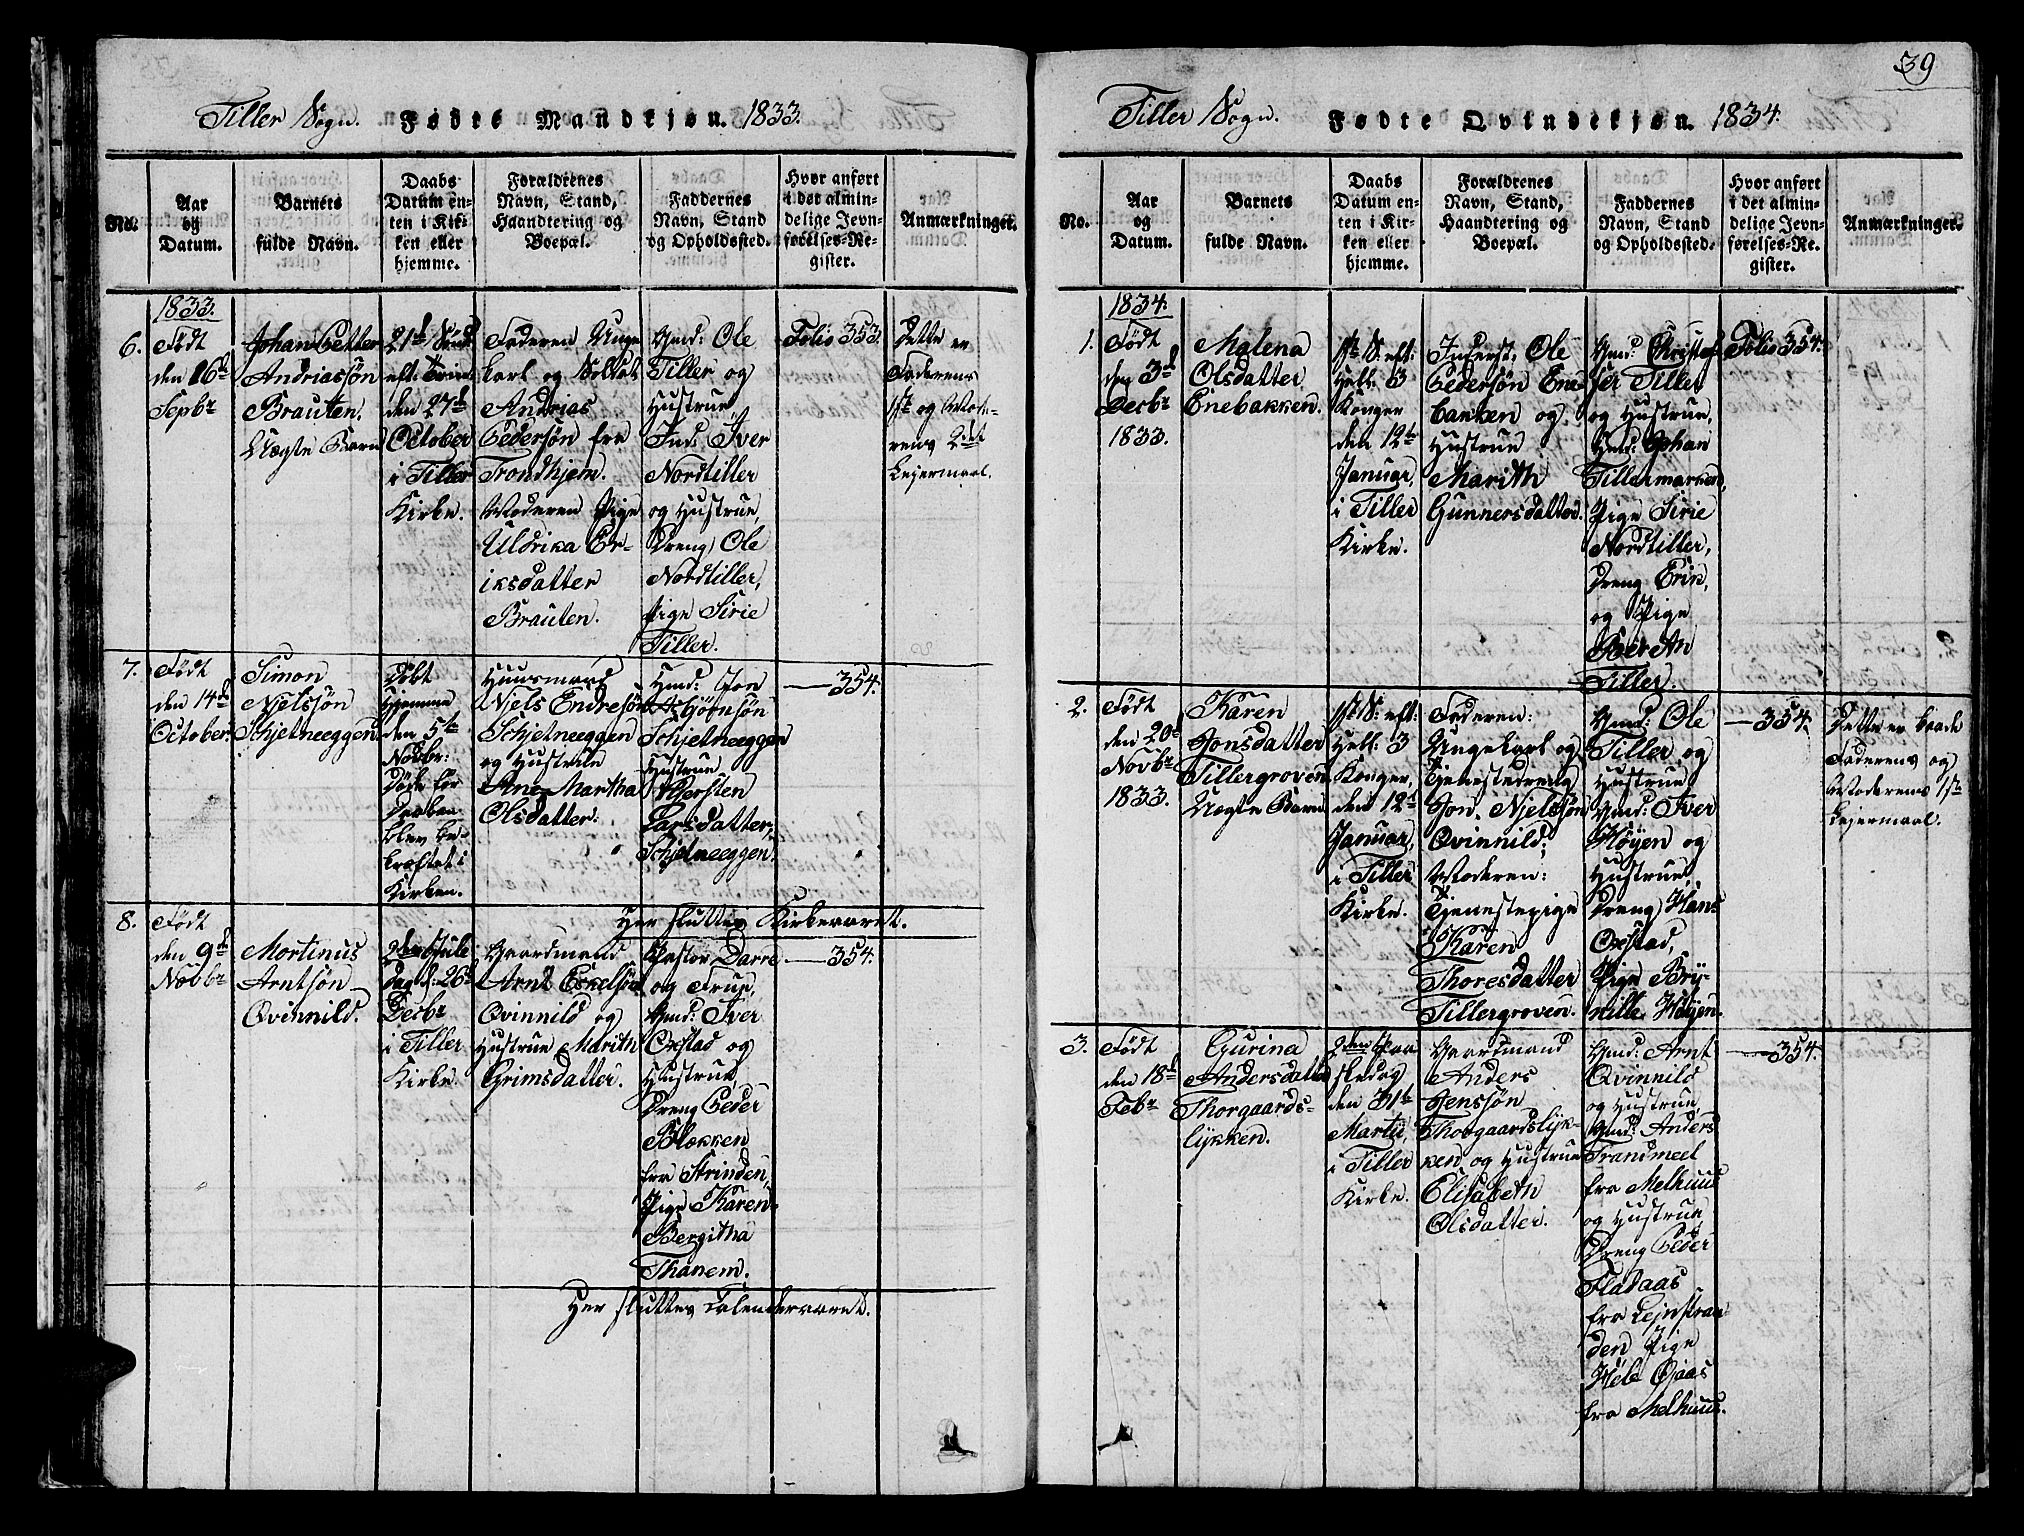 39
Tiller Sogn. Fødte Mandkjøn. 1833.
No.
Aar
og
Datum.
Barnets
fulde Navn.
Daabs
Datum en-
ten i Kir-
ken eller
hjemme.
Forældrenes
Navn, Stand,
Haandtering og
Boepæl.
Faddernes
Navn, Stand
og Opholdssted.
Hvor anført
i det almin-
delige Jevn-
førelses-Re-
gister.
Anmærkninger.
1833.
6.
Født
den 16de
Sepbr
Johan Petter
Andriassøn
Brauten.
Uægte Barn
21de Sønd
eft: Trin:
den 27de
October
i Tiller
Kirke.
Faderen Unge
karl og Soldat
Andrias
Pedersøn fra
Trondhjem.
Moderen Pige
Uldrika Er-
iksdatter
Brauten.
Gmd: Ole
Tiller og
Hustrue
Ind: Iver
Nordtiller
og Hustrue,
Dreng Ole
Nordtiller,
Pige Sirie
Tiller.
Folio 353.
Dette er
Faderens
1ste og Mode-
rens 2det
Lejermaal.
7.
Født
den 14de
October.
Simon
Njelssøn
Schjetneeggen
Døbt
Hjemme
den 5te
Novbr:
Døbt for
Daaben
blev be-
kræftet i
Kirken.
Huusmand
Njels Endresøn
Schjetneeggen
og Hustrue
Ane Martha
Olsdatter.
Hmd: Jon
Asbjørnsøn
Schjetneeggen
Hustrue
Kjersten
Larsdatter,
Schjetneeggen.
— 354.
Her sluttes Kirkeaaret.
8.
Født
den 9de
Novbr
Mortinus
Arntsøn
Qvinnild.
2den Jule
dag d: 26de
Decbr
i Tiller
Kirke.
Gaardmand
Arnt Eskelsøn
Qvinnild og
Hustrue Marith
Grimsdatter.
Pastor Darre
og Frue,
Gmd: Iver
Oxstad og
Hustrue,
Dreng Peder
Blekken
fra Strinden,
Pige Karen
Bergitha
Thanem.
— 354.
Her sluttes Calenderaaret.
Tiller Sogn. Fødte Qvindekjøn. 1834.
No.
Aar
og
Datum.
Barnets
fulde Navn.
Daabs
Datum en-
ten i Kir-
ken eller
hjemme.
Forældrenes
Navn, Stand,
Haandtering og
Boepæl.
Faddernes
Navn, Stand
og Opholdssted.
Hvor anført
i det almin-
delige Jevn-
førelses-Re-
gister.
Anmærkninger.
1834.
1.
Født
den 3de
Decbr
1833.
Malena
Olsdatter
Enebakken.
1ste S. eft:
Hell: 3
Konger
den 12te
Januar,
i Tiller
Kirke.
Inderst: Ole
Pedersøn Ene
bakken og
Hustrue
Marith
Gunnersdatter.
Gmd: Christof-
fer Tiller
og Hustrue,
Hmd: Johan
Tillermarken,
Pige Sirie
Nordtiller,
Dreng Erik,
og Pige
Berith
Tiller.
Folio 354.
2.
Født
den 20de
Novbr
1833.
Karen
Jonsdatter
Tillergroven
Uægte Barn
1ste S: eft:
Hell: 3
Konger,
den 12te
Januar,
i Tiller
Kirke.
Faderen:
Ungekarl og
Tjenestedreng
Jon Njelssøn
Qvinnild;
Moderen:
Tjenestepige
Karen
Thoresdatter
Tillergroven.
Gmd: Ole
Tiller og
Hustrue
Gmd: Iver
Høyen og
Hustrue,
Dreng Hans
Oxstad,
Pige Bry-
nille Høyen.
— 354.
Dette er baade
Faderens og
Moderens 1ste
Lejermaal.
3.
Født
den 18de
Febr
Gurina
Andersdatter
Thorgaards-
lykken.
2den Paa
skedag
den 31te
Martii,
i Tiller
Kirke.
Gaardmand
Anders
Jenssøn
Thorgaardslyk-
ken og Hustrue
Elisabeth
Olsdatter.
Gmd: Arnt
Qvinnild
og Hustrue,
Gmd: Anders
Trandmeel
fra Melhuus
og Hustrue,
Dreng Peder
Fladaas
fra Lejnstran-
den Pige
Hele Ojaas
fra Melhuus.
— 354.